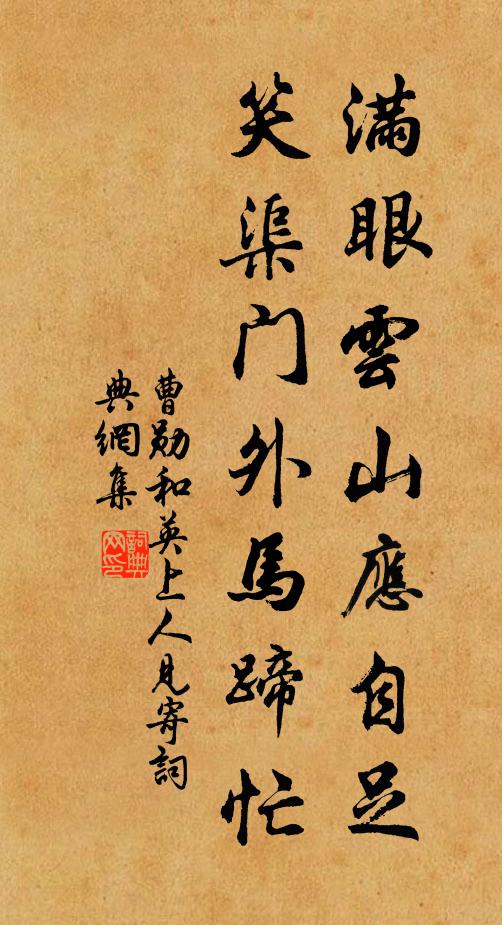 满眼雲山應自足
笑渠门外馬蹄忙
曹勋和英上人見寄詞
典網集
詞典网印